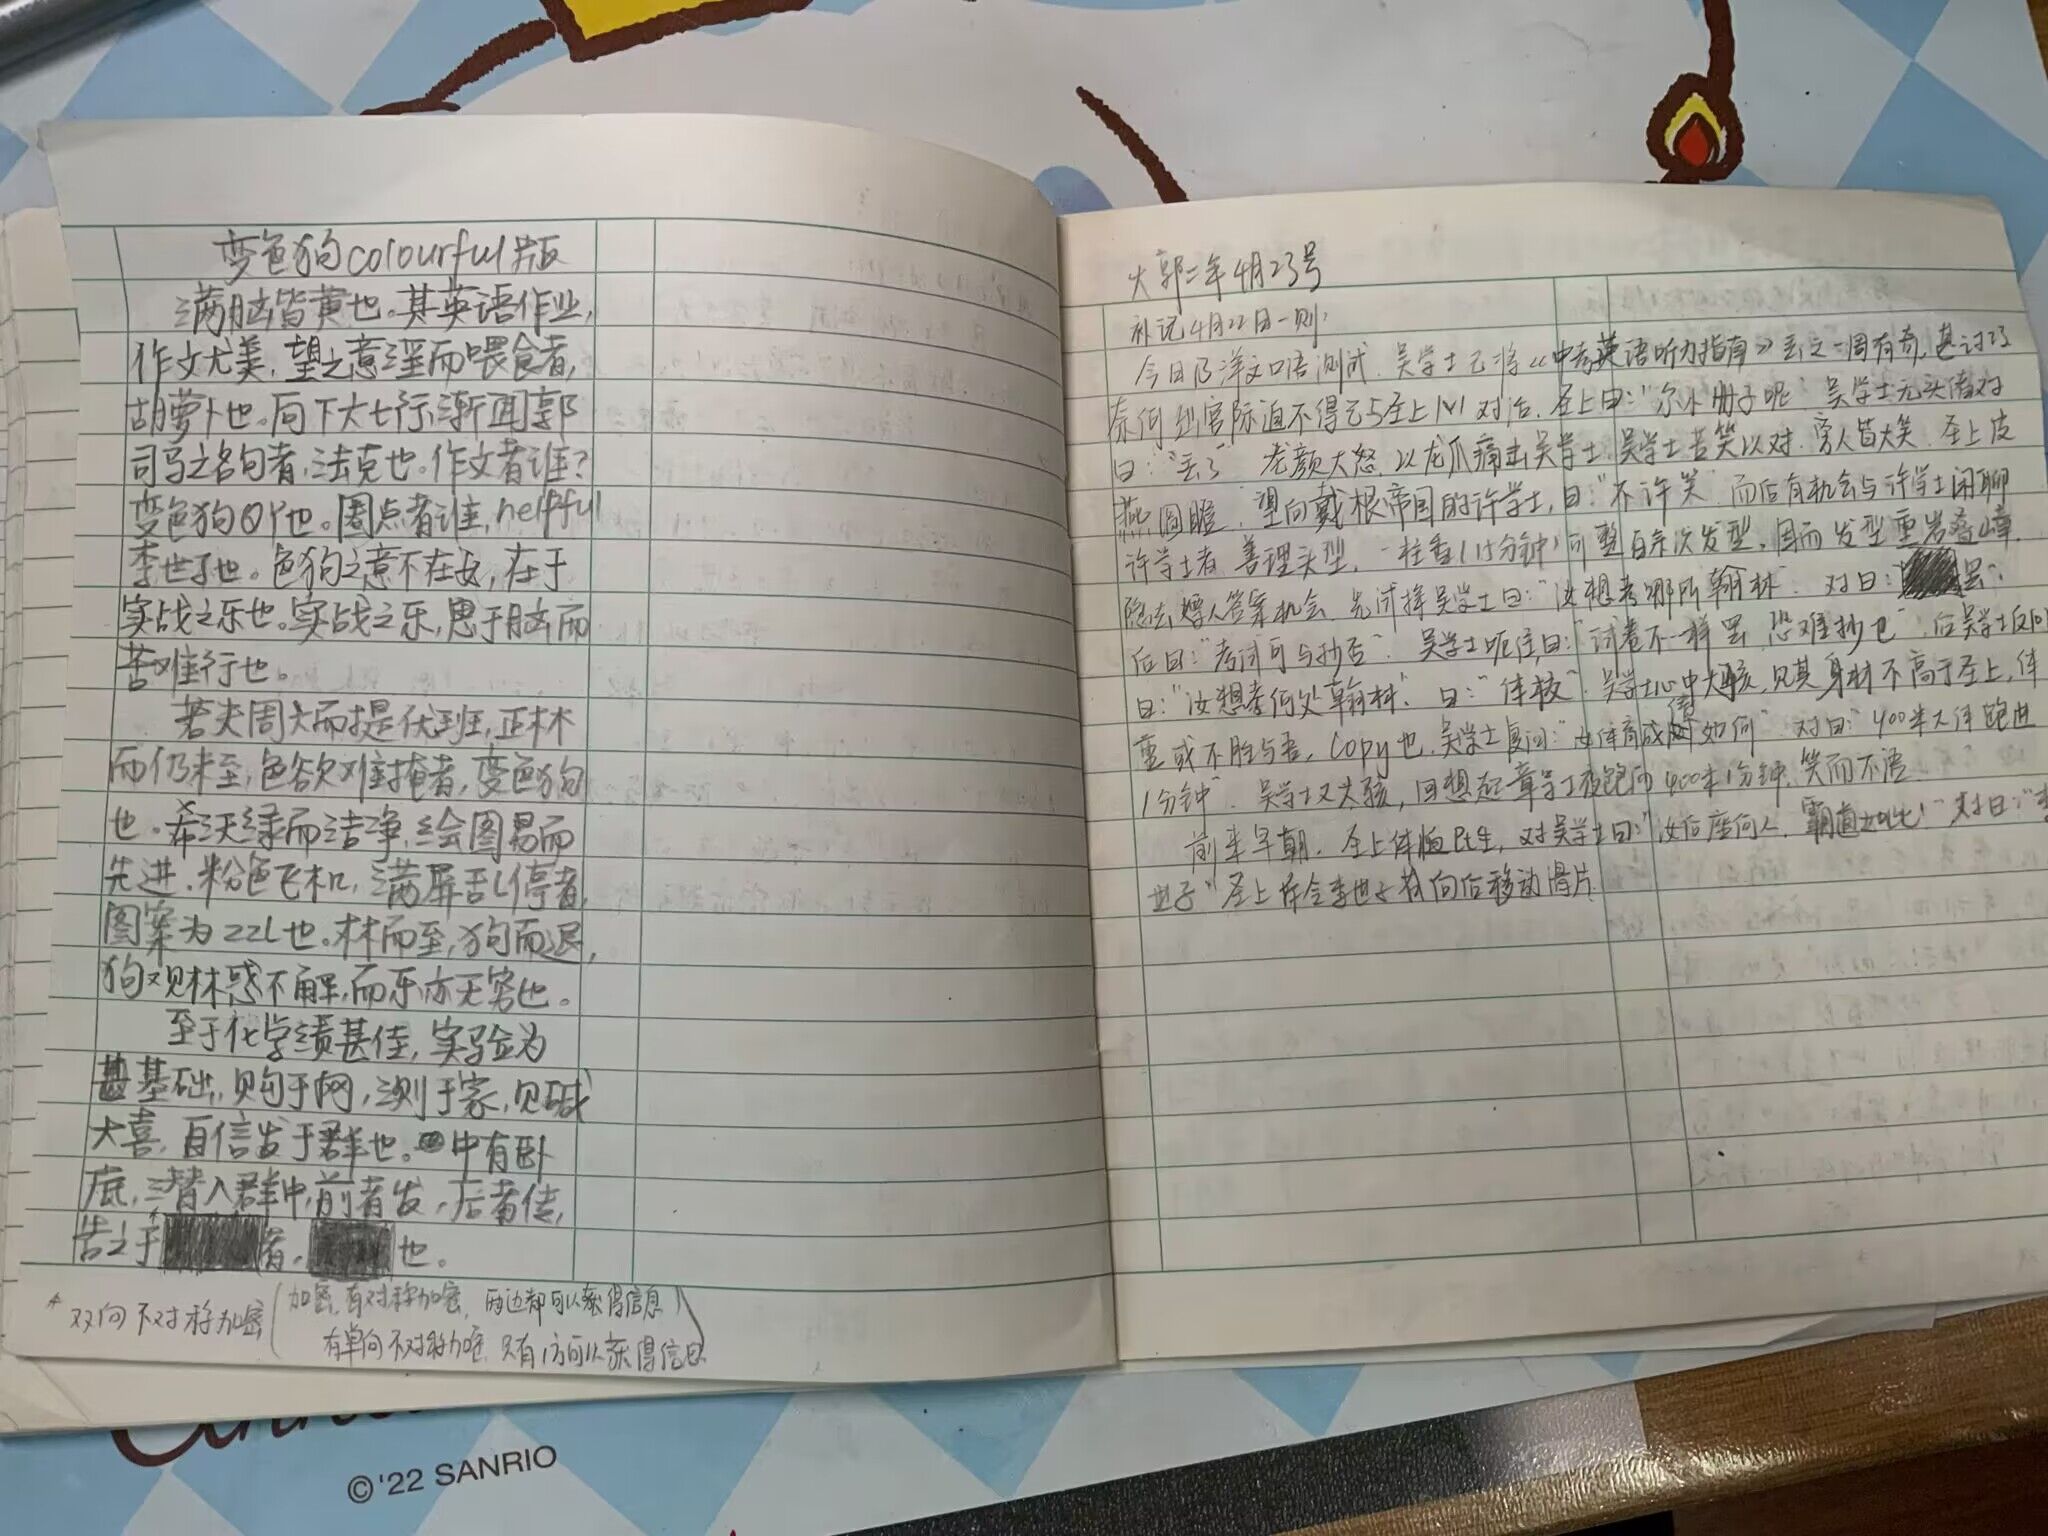 变色狗colourful版
满脑皆黄也。其英语作业,
作文尤美,望之意淫而喂食者,
胡萝卜也。向下大七行,渐闻郭
司马之名句者,法克也。作文者谁?
变色狗QY也。圈点者谁,helpful
李世子也。色狗之意不在女,在于
实战之乐也。实战之乐,思于脑而
苦难行也。
若夫周六而提优班,正林
而仍未至,色欲难掩者,变色狗
也。希沃绿而洁净,绘图易而
先进,粉色飞机,满屏乱停者,
图案为ZZL也。林而至,狗而退,
狗观林惑不解,而乐亦无穷也。
至于化学绩甚佳,实验为
基础,购于网,测于家,见碱
大喜,自信发于群也。中有卧
底,潜入群中,前者发,后者传,
告之于 者, 也。
* 双向不对称加密(加密,有对称加密,两边都可以获得信息
有单向不对称加密,只有1方可以获得信息)
大郭二年4月23号
补记4月22日一则:
今日乃洋文口语测试,吴学士已将《中考英语听力指南》丢之一周有奇,
奈何 迫不得已与圣上1v1对话,圣上曰:"尔小册子呢" 吴学士 对
曰:"丢了" 龙颜大怒,以龙爪痛击吴学士,吴学士苦笑以对,旁人皆大笑,圣上
望向戴根帝国的许学士,曰:"不许笑" 而后有机会与许学士闲聊
许学士者,善理头型,一柱香(15分钟)可整 次发型,因而发型重岩叠嶂,
吴学士曰:"汝想考哪所翰林" 对曰:" 罢"
后曰:"考试可与抄否" 吴学士 曰:"试卷不一样罢,恐难抄也" 后吴学士反问
曰:"汝想考何处翰林" 曰:"体校" 吴学士心中大骇,见其身材不高于圣上,体
重或不胜与吾,copy也,吴学士复问:"汝体育成绩如何" 对曰:"400米大体跑进
1分钟" 吴学士又大骇,回想起章学士 400米1分钟,笑而不语
前来早朝,圣上体恤民生,对吴学士曰:"汝后座何人,霸道如此!" 对曰:"李
世子" 圣上 令李世子 向后移动
©'22 SANRIO